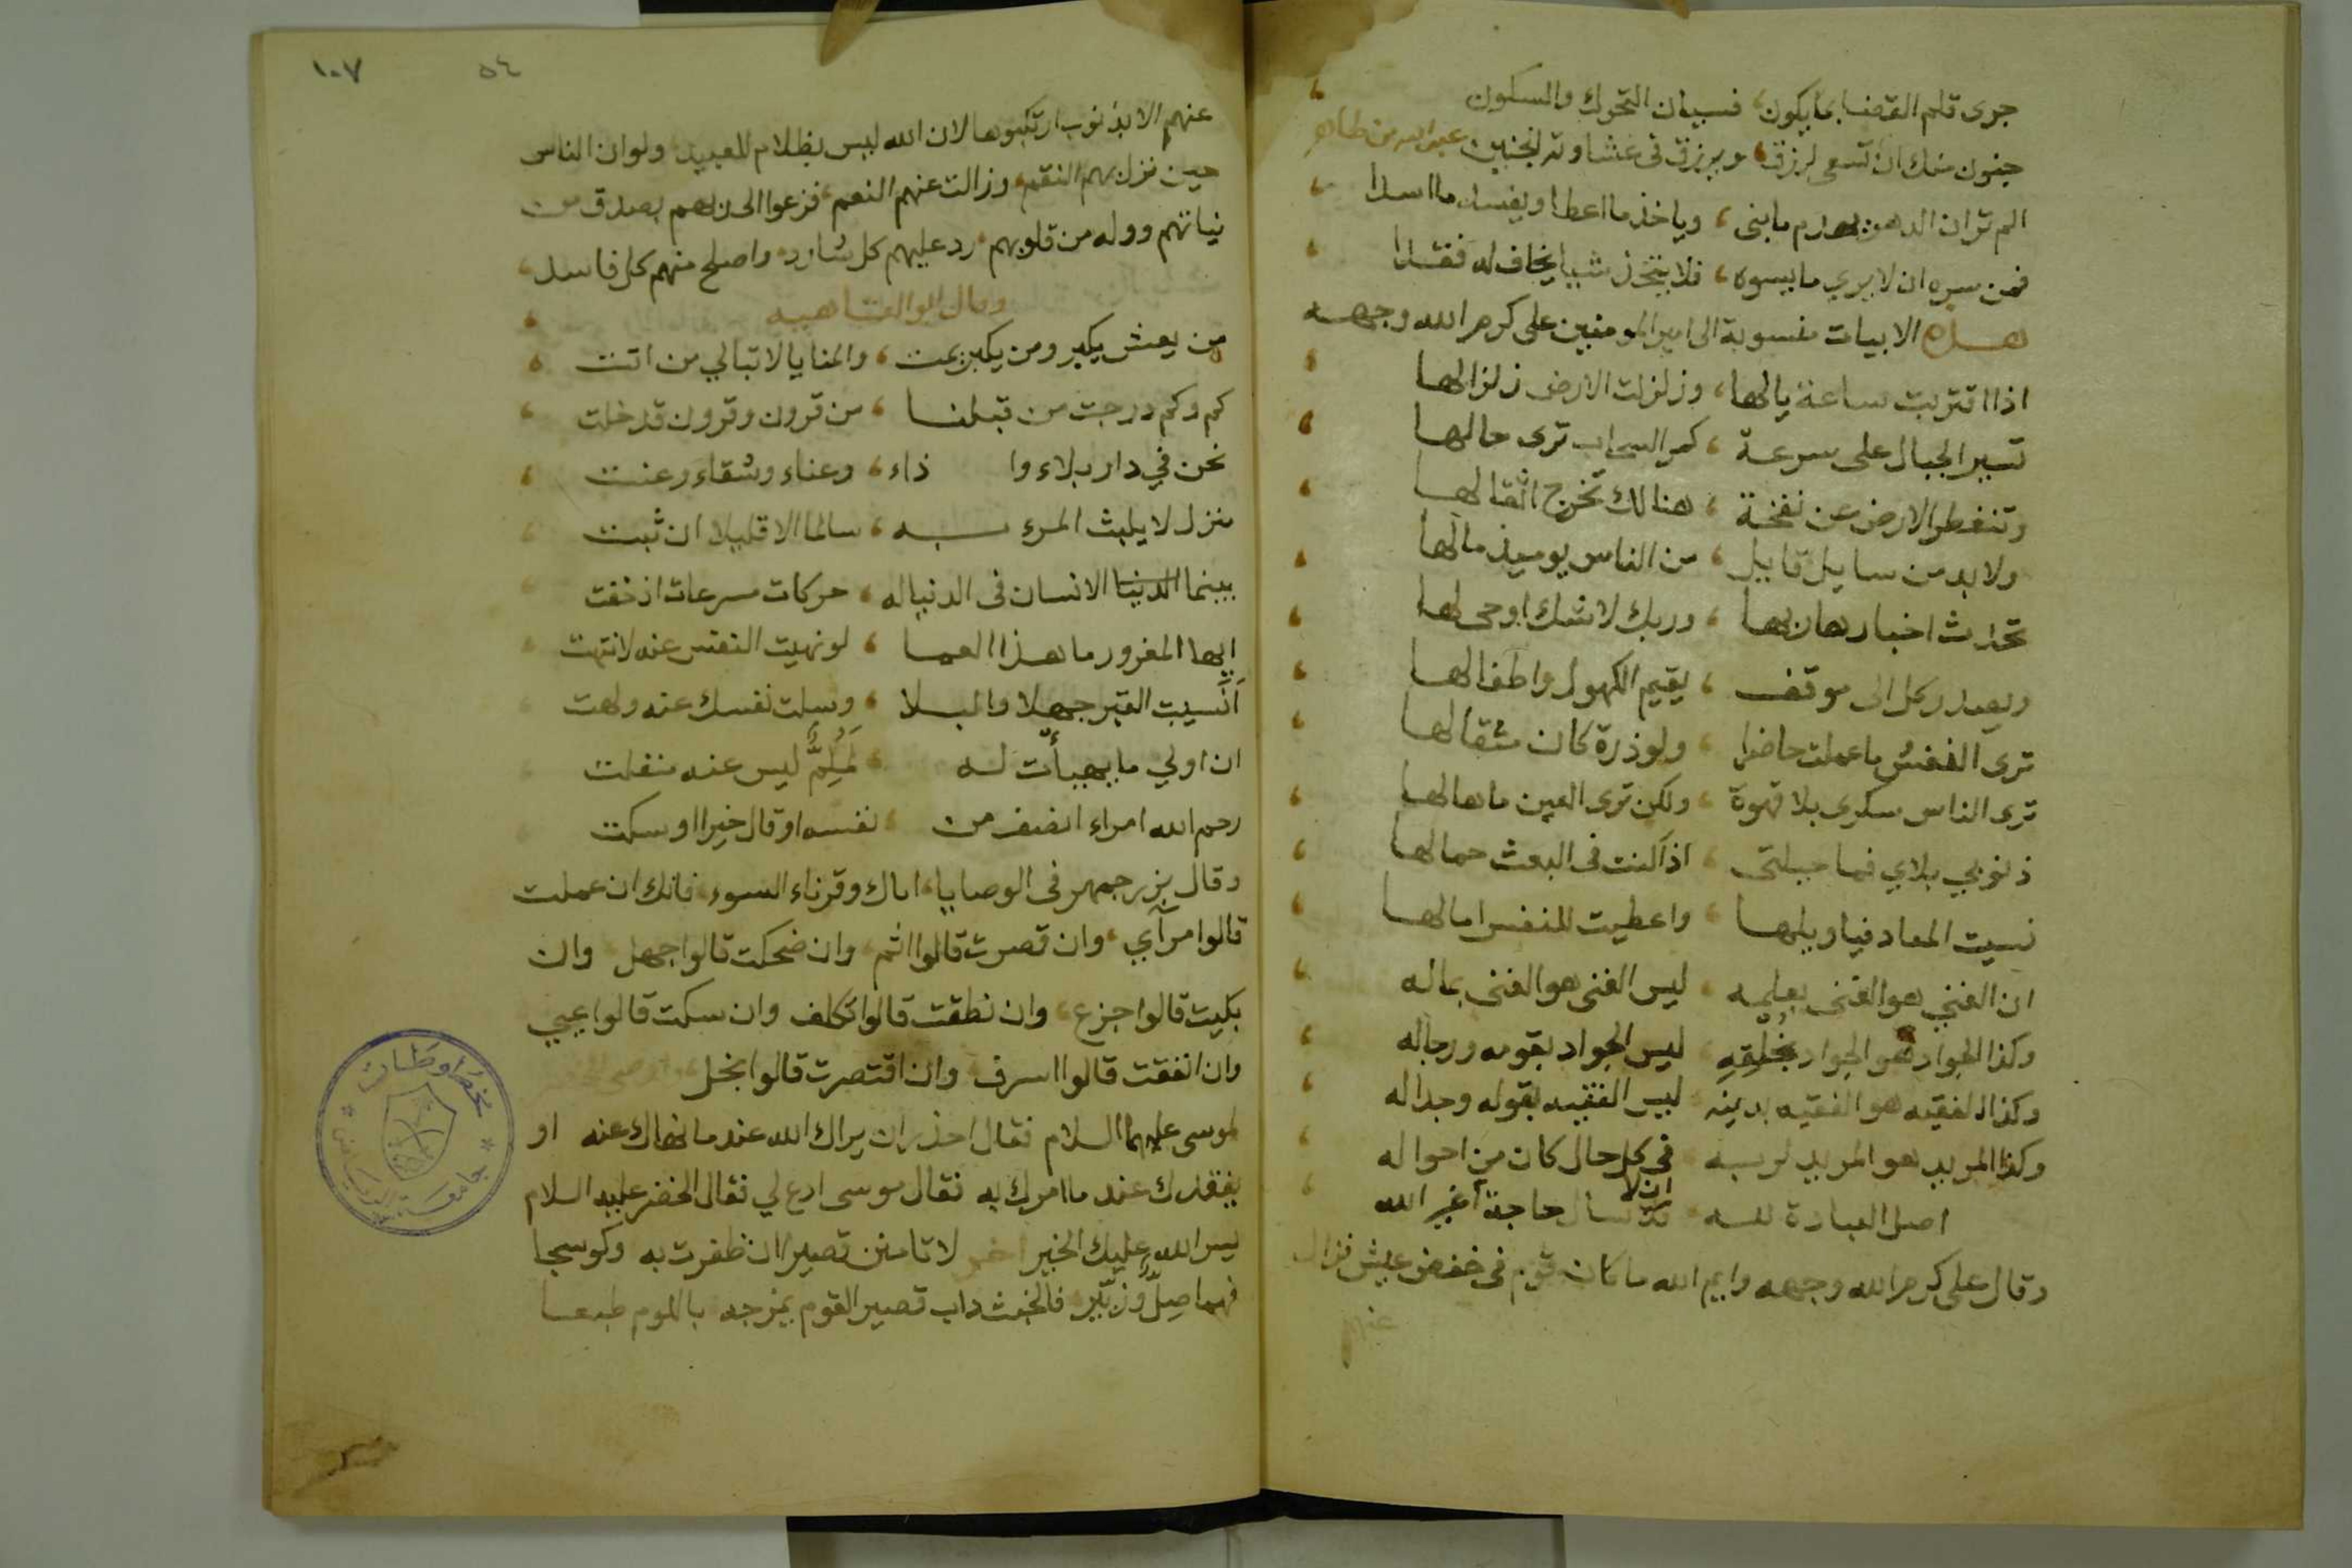 جرى قلم القضا بما يكون ، فسيان التحرك والسكون
جنون منك ان تسعى لرزق ، ويرزق في غشاوته الجنين عبد الله بن طاهر
الم تر ان الدهر يهدم ما بنى ، وياخذ ما اعطا ويفسد ما اسدا
فمن سره ان لا يري ما يسوه ، فلا يتخذ شيا يخاف له فقدا
هذه الابيات منسوبة الى امير المومنين على كرم الله وجهه
اذا اقتربت ساعة يالها ، وزلزلت الارض زلزالها
تسير الجبال على سرعة ، كمر السحاب ترى حالها
وتنفطر الارض عن نفخة ، هنالك تخرج اثقالها
ولا بد من سايل قايل ، من الناس يوميذ مالها
تحدث اخبارها ربها ، وربك لا شك اوحى لها
ويصدر كل الى موقف ، يقيم الكهول واطفالها
ترى النفس ما عملت حاضرا ، ولو ذرة كان مثقالها
ترى الناس سكرى بلا قهوة ، ولكن ترى العين ما هالها
ذنوبي بلاي فما حيلتى ، اذا كنت في البعث حمالها
نسيت المعاد فيا ويلها ، واعطيت للنفس امالها
ان الغني هو الغنى بعلمه ، ليس الغنى هو الغنى بماله
وكذا الجواد هو الجواد بخلقه ، ليس الجواد بقومه ورجاله
وكذا الفقيه هو الفقيه بدينه ، ليس الفقيه بقوله وجداله
وكذا المريد هو المريد لربه ، في كل حال كان من احواله
اصل العبادة لله ، ان لا تسال حاجة غير الله
وقال على كرم الله وجهه وايم الله ما كان قوم في خفض عيش فزال
عنهم
١٠٧
٥٤
عنهم الا بذنوب ارتكبوها لان الله ليس بظلام للعبيد ولو ان الناس
حين نزل بهم النقم ، وزالت عنهم النعم ، فزعوا الى ربهم بصدق من
نياتهم ووله من قلوبهم ، رد عليهم كل شارد ، واصلح منهم كل فاسد ،
وقال ابو العتاهيه
من يعش يكبر ومن يكبر يمت ، والمنايا لا تبالي من اتت
كم وكم درجت من قبلنا ، من قرون وقرون قد خلت
نحن في دار بلاء وا ذاء ، وعناء وشقاء وعنت
منزل لا يلبث المرء به ، سالما الا قليلا ان ثبت
بينما الدنيا الانسان في الدنيا له ، حركات مسرعات اذ خفت
ايها المغرور ما هذا العما ، لو نهيت النفس عنه لانتهت
انسيت القبر جهلا والبلا ، وسلت نفسك عنه ولهت
ان اولي ما يهيأت له ، لملم ليس عنه منفلت
رحم الله امراء انصف من ، نفسه او قال خيرا او سكت
وقال بزرجمهر في الوصايا ، اياك وقرناء السوء فانك ان عملت
قالوا مرآي ، وان قصرت قالوا اثم ، وان ضحكت قالوا جهل وان
بكيت قالوا جزع ، وان نطقت قالوا تكلف وان سكت قالوا عيي
وان انفقت قالوا اسرف وان اقتصرت قالوا بخل
لموسى عليهما السلام فقال احذر ان يراك الله عند ما نهاك عنه او
يفقدك عند ما امرك به فقال موسى ادع لي فقال الخضر عليه السلام
يسر الله عليك الخير اخر لا تامنن قصيرا ان ظفرت به وكوسجا
فهما صل وزير ، فالخبث داب قصير القوم يمزجه باللوم طبعا
مخطوطات
جامعة